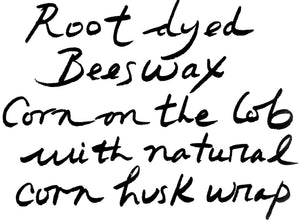 Root dyed
Beeswax
Corn on the Cob
with natural
corn husk wrap